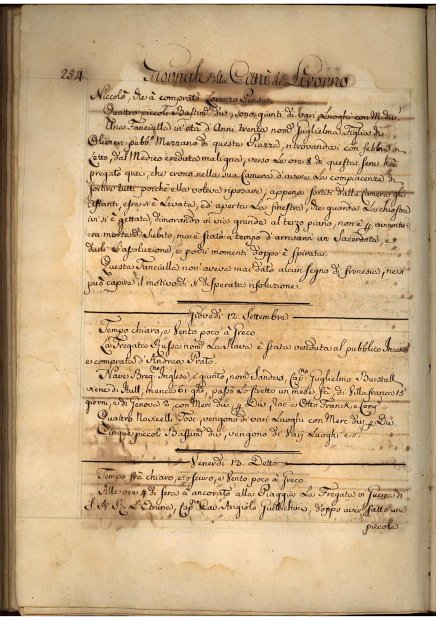 254. Giornale della Città di Livorno
Niccolò, che à comprato Lorenzo
Quattro piccoli Bastim. div. sono giunti di Vari Luoghi con M. div.
Una Fanciulla in età d'Anni trenta nom. Guglielma Figlia di
Oliveri pubb. Mezzano di questa Piazza, ritrovandosi con febbre in
Letto, dal Medico creduta maligna, verso Le ore 8 di questa sera hà
pregato quei, che erono nella sua Camera d'avere La compiacenza di
sortire tutti perchè ella voleva riposare; appena sortiti dalla Camera gli
Astanti, essa si è Levata, ed aperta La finestra, che guarda La chiostra
ivi si è gettata, dimorando in via grande al terzo piano, non è
morta di Subito, ma è stato a tempo di arrivarvi un Sacerdote, e
darle L'assoluzione, e pochi momenti doppo è spirata.
Questa Fanciulla non aveva mai dato alcun segno di frenesia, ne si
può capire il motivo di sì disperata risoluzione.
Giovedì 12. Settembre
Tempo chiaro, e Vento poco à Greco.
La Fregata Russa nom. La Slava è stata venduta al pubblico Incanto
e comprata d'Andrea Prato.
Nave Brig. Inglese, è giunto, nom. Sanders, Cap.no Guglielmo Burstall
viene di Hull, manca 61 gti, passò Lo stretto un mese fà, di Villafranca 15
giorni, e di Genova 2, con Merc. div. a Otto Franck, e Comp.
Quattro Navicelli Tosc. vengono di vari Luoghi con Merc. div. a Div.
Cinque piccoli Bastim. div. vengono di Vari Luoghi
Venerdì 13. Detto
Tempo frà chiaro, e oscuro, e Vento poco à Greco.
Alle ore 4 di sera è ancorato alla Piaggia La Fregata in Guerra di
S. A. R. L'Etruria, Cap. Cav. Angiolo doppo aver fatto una
piccola